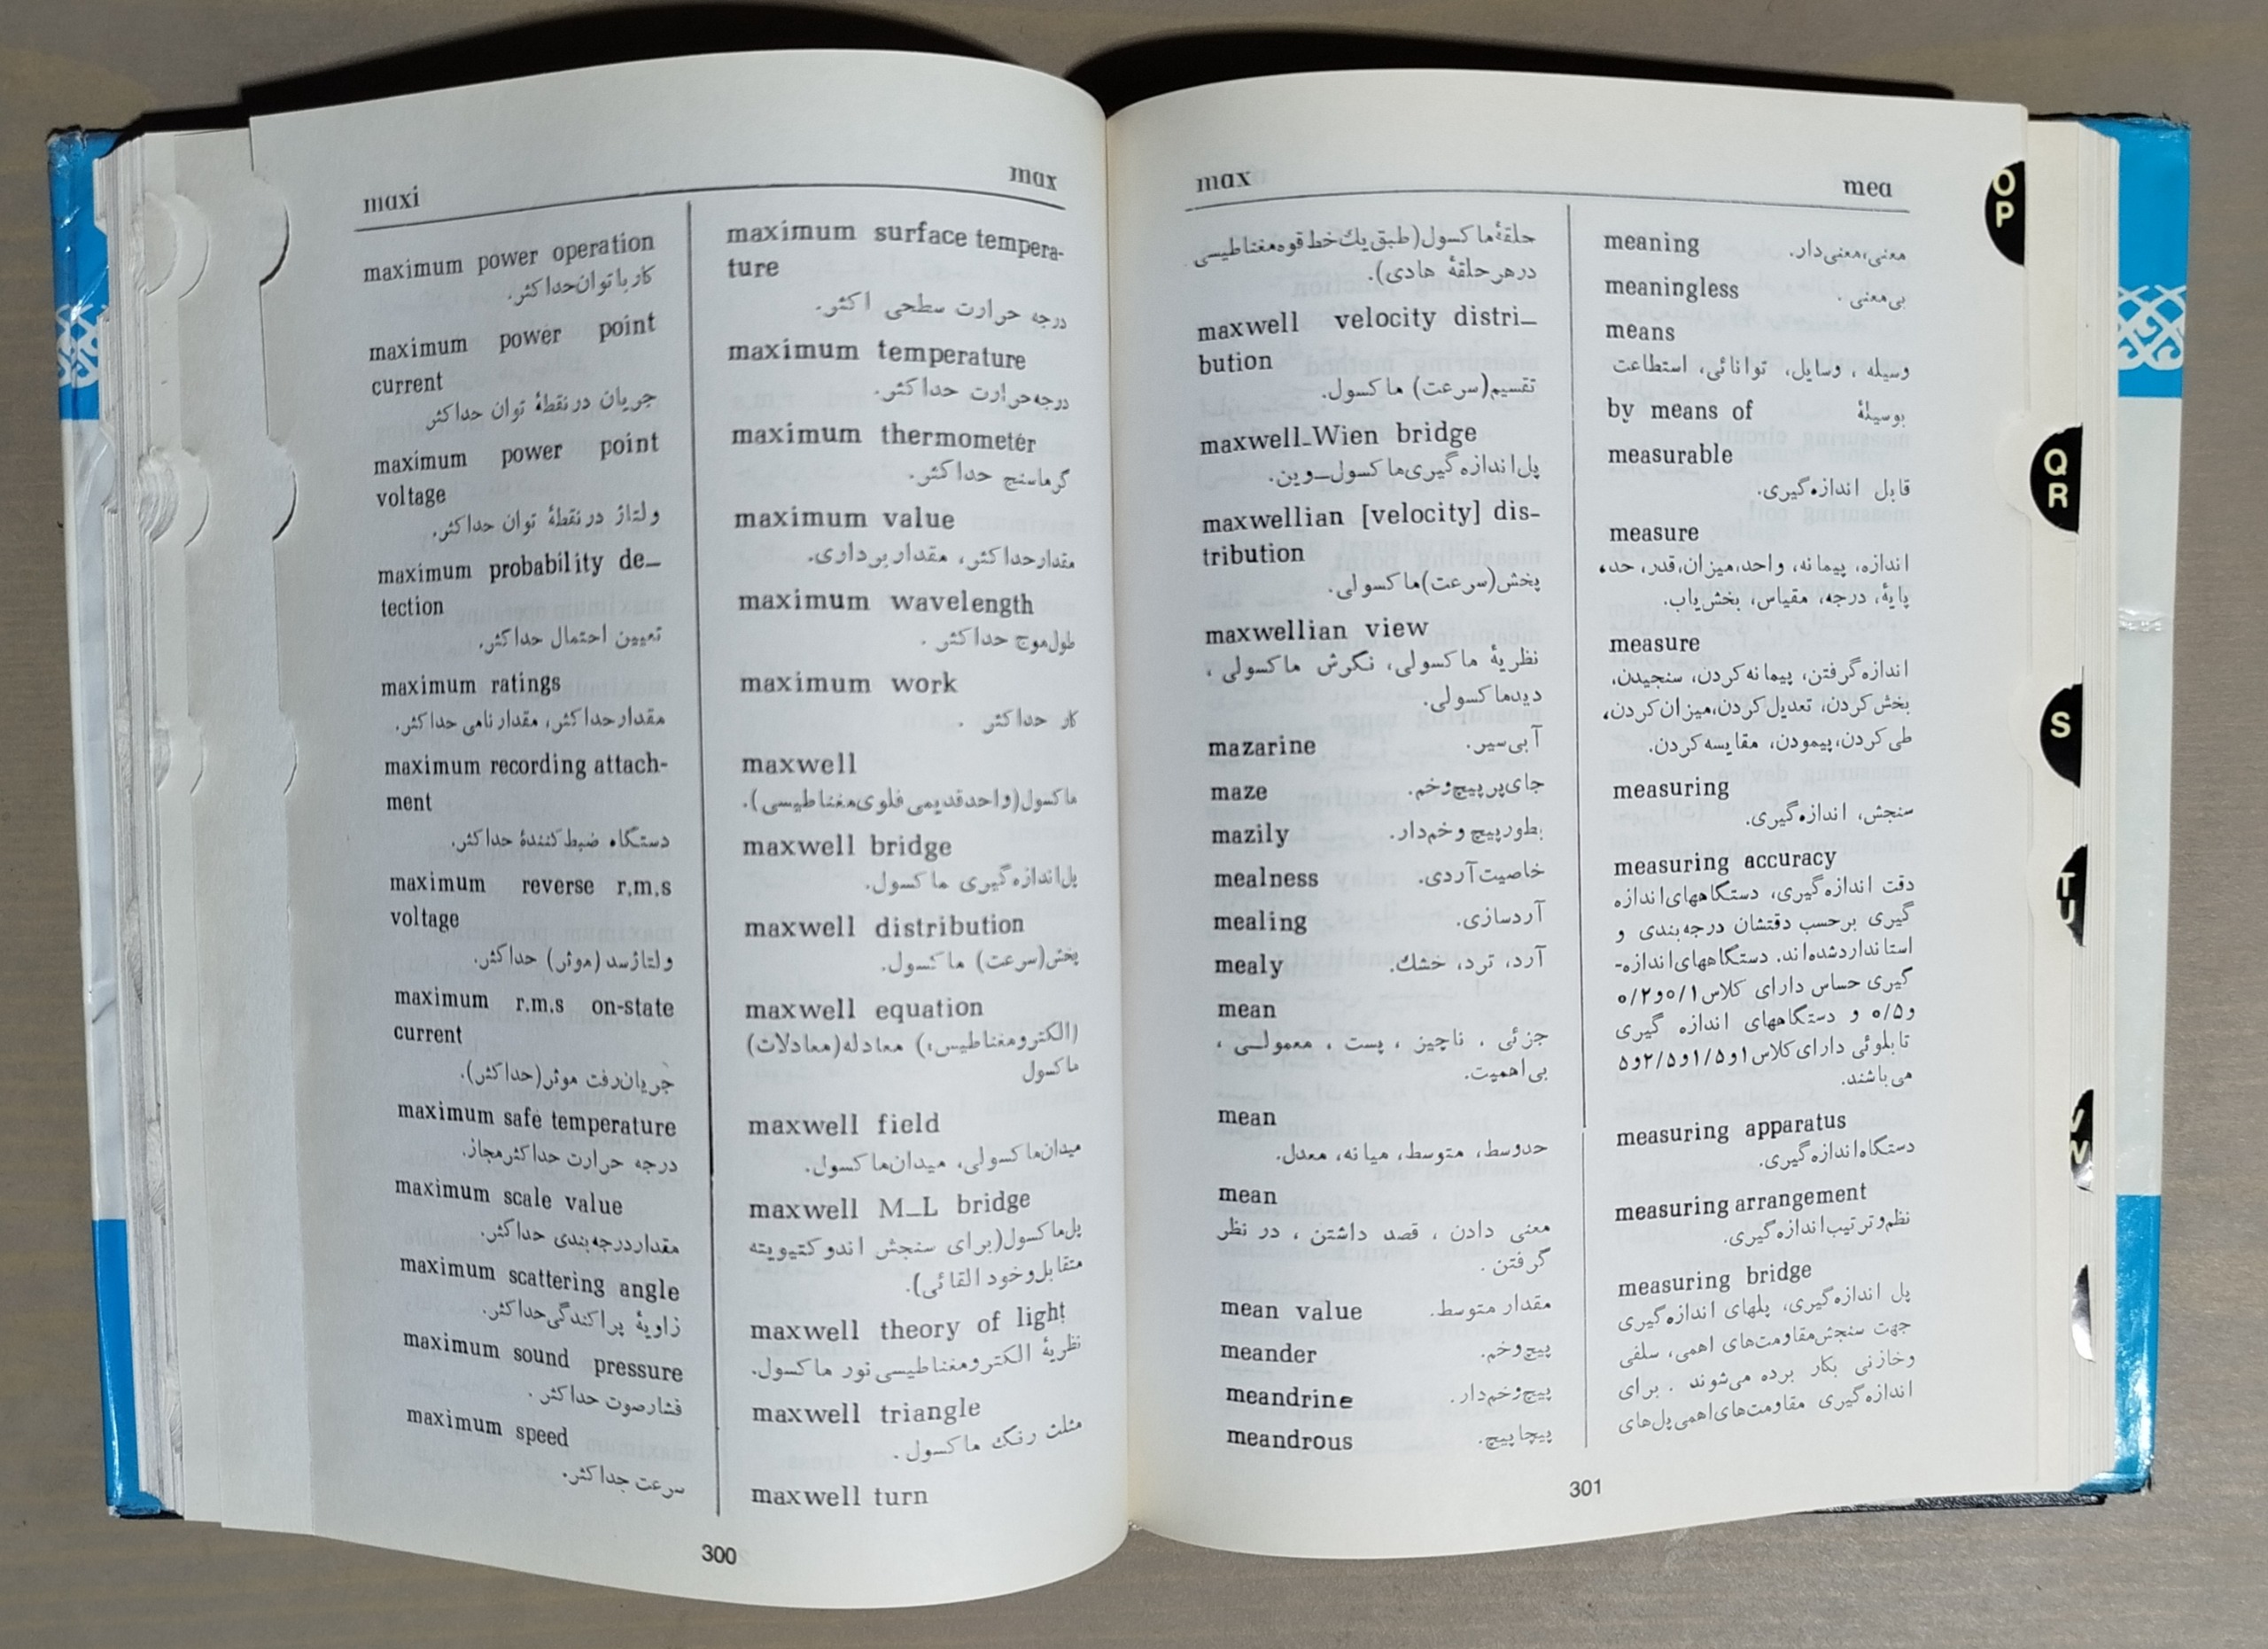 maxi
max
maximum power operation
کار با توان حداکثر.
maximum power point
current
جریان در نقطهٔ توان حداکثر
maximum power point
voltage
ولتاژ در نقطهٔ توان حداکثر.
maximum probability de_
tection
تعیین احتمال حداکثر.
maximum ratings
مقدار حداکثر، مقدار نامی حداکثر.
maximum recording attach-
ment
دستگاه ضبط کنندهٔ حداکثر.
maximum reverse r.m.s
voltage
ولتاژ سد (موثر) حداکثر.
maximum r.m.s on-state
current
جریان رفت موثر (حداکثر).
maximum safe temperature
درجه حرارت حداکثر مجاز.
maximum scale value
مقدار درجه بندی حداکثر.
maximum scattering angle
زاویهٔ پراکندگی حداکثر.
maximum sound pressure
فشار صوت حداکثر .
maximum speed
سرعت حداکثر.
maximum surface tempera-
ture
درجه حرارت سطحی اکثر.
maximum temperature
درجه حرارت حداکثر.
maximum thermometer
گرماسنج حداکثر.
maximum value
مقدار حداکثر، مقدار برداری.
maximum wavelength
طول موج حداکثر .
maximum work
کار حداکثر .
maxwell
ماکسول (واحد قدیمی فلوی مغناطیسی).
maxwell bridge
پل اندازه گیری ماکسول.
maxwell distribution
پخش (سرعت) ماکسول.
maxwell equation
(الکترومغناطیس،) معادله (معادلات)
ماکسول
maxwell field
میدان ماکسولی، میدان ماکسول.
maxwell M_L bridge
پل ماکسول (برای سنجش اندوکتیویته
متقابل و خود القائی).
maxwell theory of light
نظریهٔ الکترومغناطیسی نور ماکسول.
maxwell triangle
مثلث رنگ ماکسول .
maxwell turn
300
max
mea
حلقهٔ ماکسول (طبق یك خط قوه مغناطیسی
در هر حلقهٔ هادی).
maxwell velocity distri_
bution
تقسیم (سرعت) ماکسول.
maxwell_Wien bridge
پل اندازه گیری ماکسول_وین.
maxwellian [velocity] dis-
tribution
پخش (سرعت) ماکسولی.
maxwellian view
نظریهٔ ماکسولی، نگرش ماکسولی ،
دید ماکسولی.
mazarine آبی سیر.
maze جای پر پیچ و خم.
mazily بطور پیچ و خم دار.
mealness خاصیت آردی.
mealing آردسازی.
mealy آرد، ترد، خشك.
mean
جزئی ، ناچیز ، پست ، معمولی ،
بی اهمیت.
mean
حد وسط، متوسط، میانه، معدل.
mean
معنی دادن ، قصد داشتن ، در نظر
گرفتن .
mean value مقدار متوسط.
meander پیچ و خم.
meandrine پیچ و خم دار.
meandrous پیچاپیچ.
meaning معنی، معنی دار.
meaningless بی معنی .
means
وسیله ، وسایل، توانائی، استطاعت
by means of بوسیلهٔ
measurable
قابل اندازه گیری.
measure
اندازه، پیمانه، واحد، میزان، قدر، حد،
پایهٔ، درجه، مقیاس، بخش یاب.
measure
اندازه گرفتن، پیمانه کردن، سنجیدن،
بخش کردن، تعدیل کردن، میزان کردن،
طی کردن، پیمودن، مقایسه کردن.
measuring
سنجش، اندازه گیری.
measuring accuracy
دقت اندازه گیری، دستگاههای اندازه
گیری برحسب دقتشان درجه بندی و
استاندارد شده اند. دستگاههای اندازه-
گیری حساس دارای کلاس ۰/۱ و ۰/۲
و ۰/۵ و دستگاههای اندازه گیری
تابلوئی دارای کلاس ۱ و ۱/۵ و ۲/۵ و ۵
می باشند.
measuring apparatus
دستگاه اندازه گیری.
measuring arrangement
نظم و ترتیب اندازه گیری.
measuring bridge
پل اندازه گیری، پلهای اندازه گیری
جهت سنجش مقاومت های اهمی، سلفی
و خازنی بکار برده می شوند . برای
اندازه گیری مقاومت های اهمی پل های
301
O
P
Q
R
S
T
U
V
W